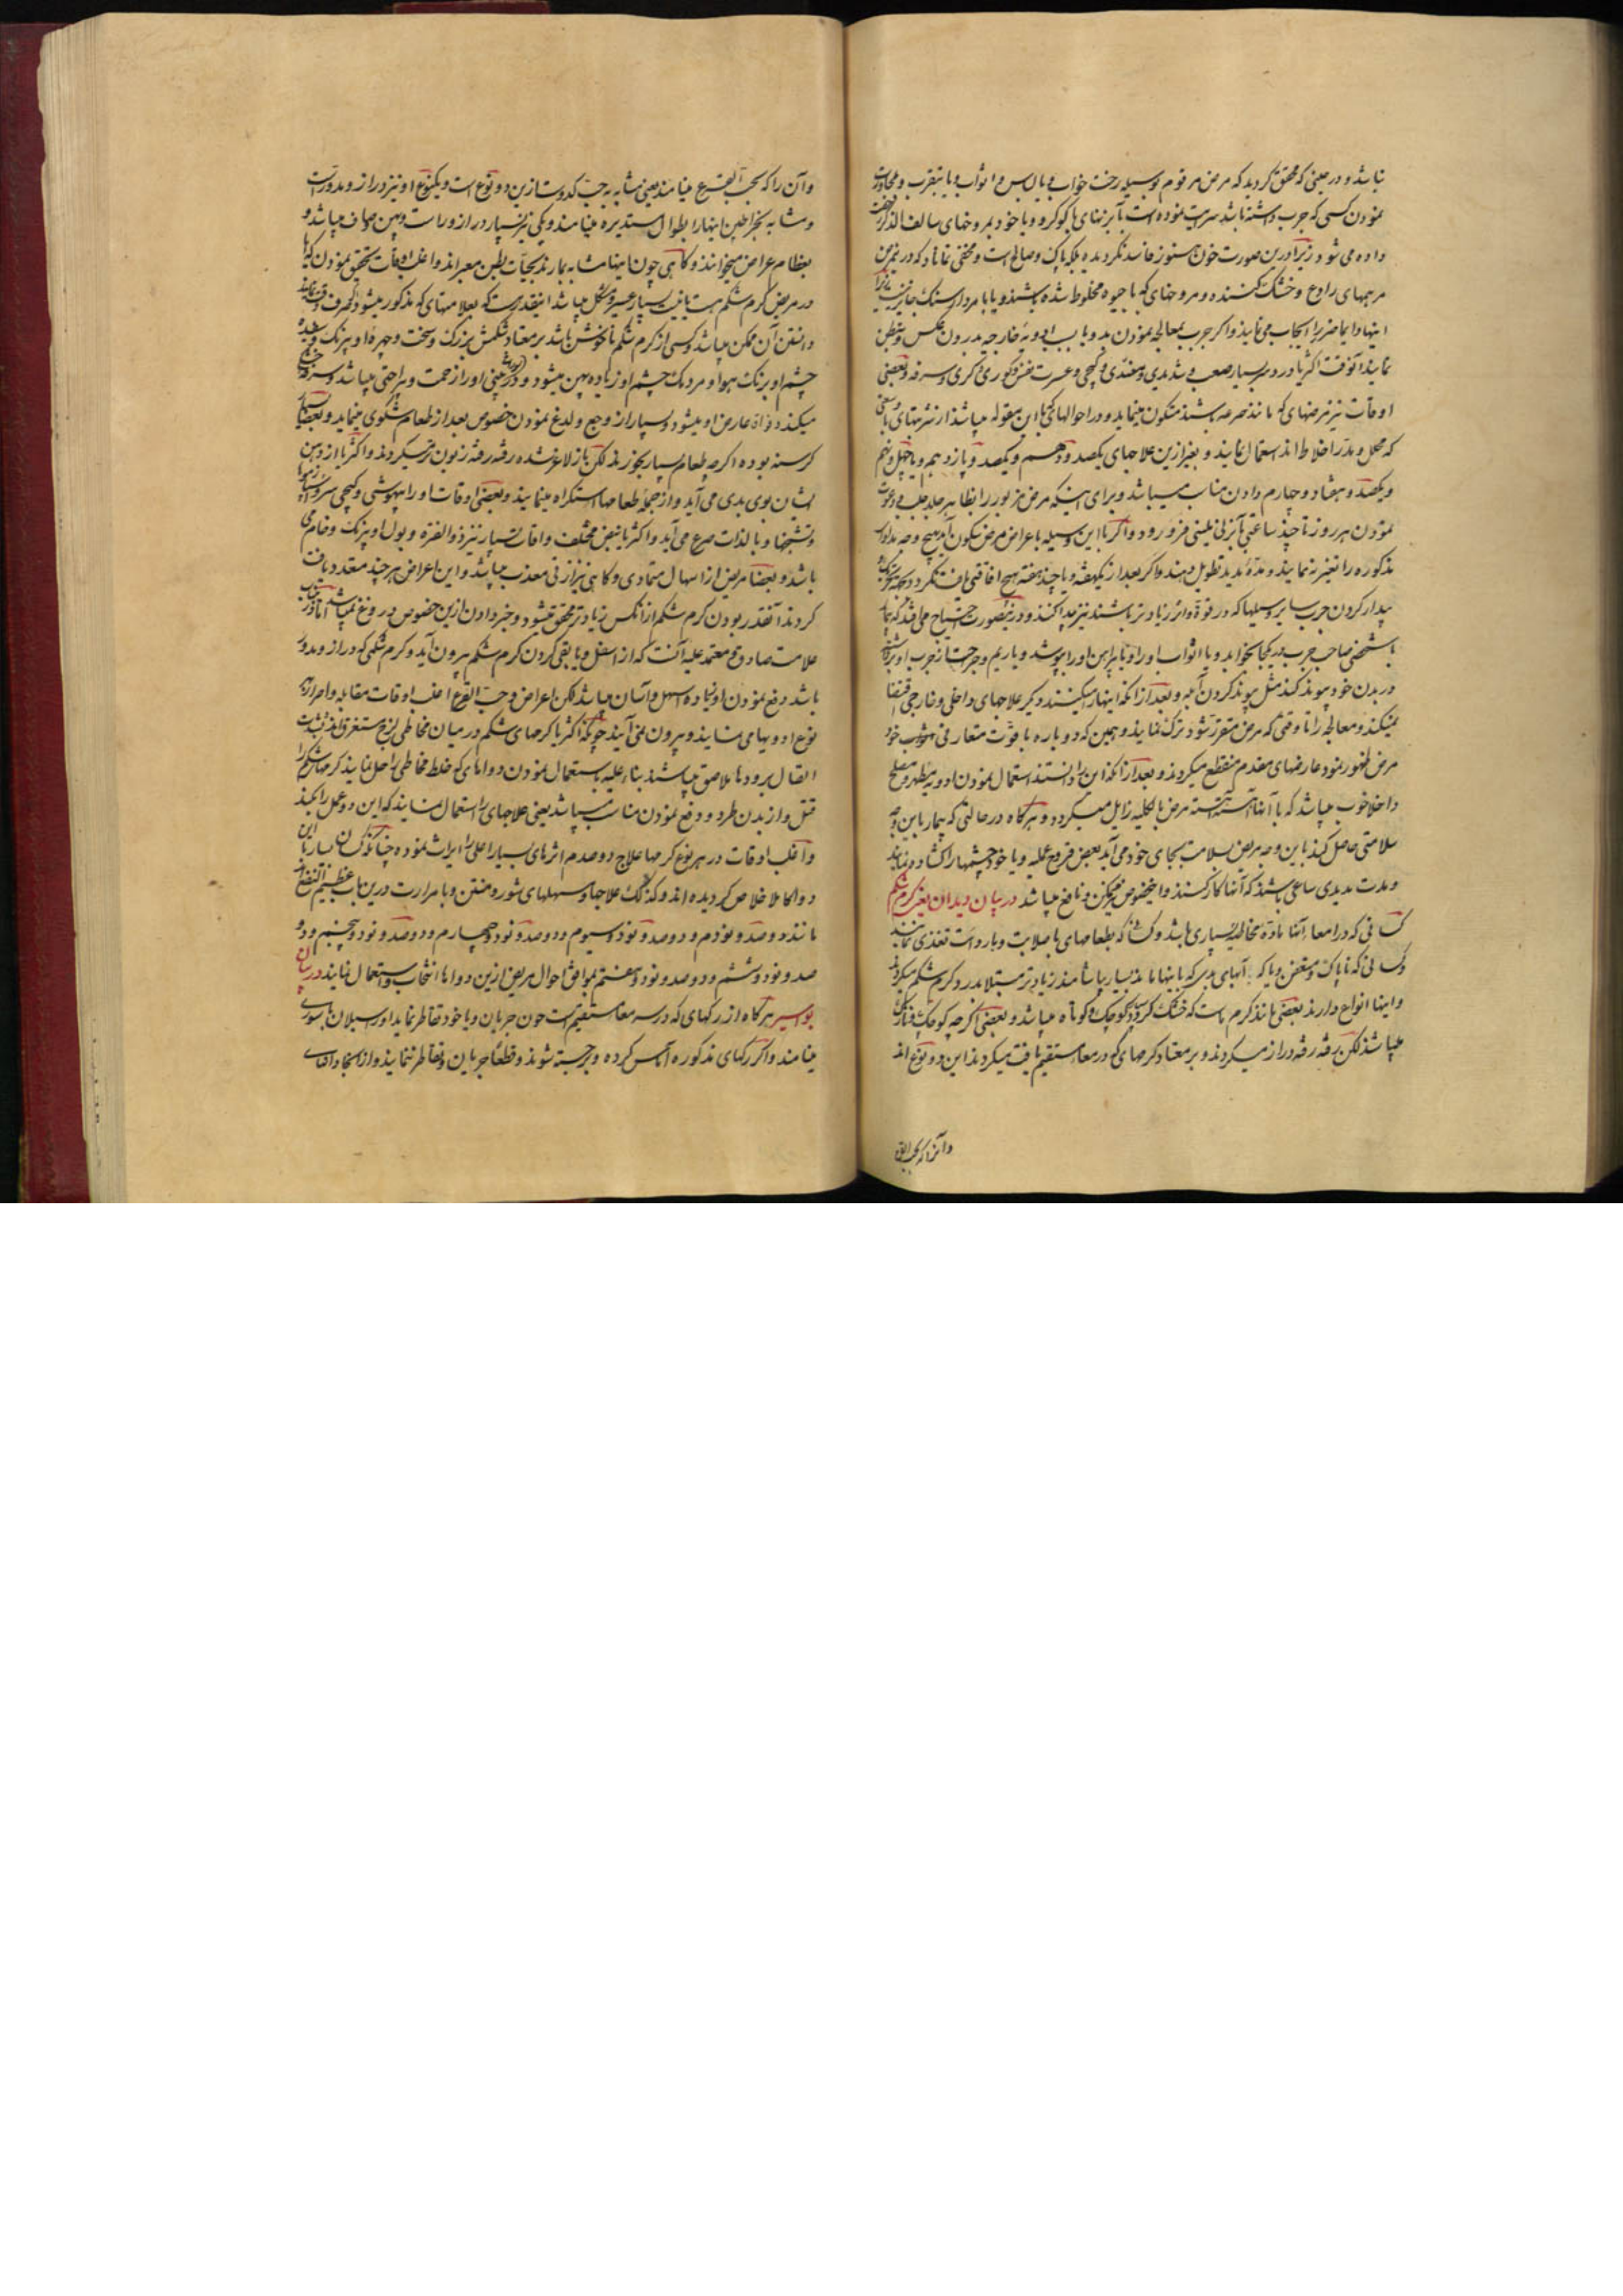 نباشد و در حینی که محقق گردید که مرض مرقوم بوسیله رخت خواب و یا لباس و اثواب و یا بتقرب و مجاورت
نمودن کسی که جرب داشته باشد سرایت نموده است با بزنهای با کوکرد و یا خود بمروخهای سالف الذکر
داده می شود زیرا درین صورت خون هنوز فاسد نگردیده بلکه پاک و صالح است و مخفی نماناد که درین مرض
مرهمهای رادع و خشک کننده و مروخهای که با جیوه مخلوط شده باشند و یا با مردار سنک جایز نیست زیرا
اینها دایما ضرر را ایجاب می نمایند و اکر جرب بمعالجه نمودن بد و یا بسبب ادویه خارجیه بدرون عکس
نمایند آنوقت اکثریا درد سر بسیار صعب و شدیدی و کیجی و عسرت نفس و کوری و کری و سرفه و بعضی
اوقات نیز مرضهای که مانند صرعه باشند متکون مینماید و در احوالهای که ازین مقوله میباشد از شربتهای
که محلل و مدر اخلاط اند استعمال نمایند و بغیر ازین علاجهای یکصد و دهم و یکصد و یازدهم و یا چهل و پنجم
ویکصد و هفتاد و چهارم دادن مناسب میباشد و برای اینکه مرض مزبور را بظاهر جلد جلب و دعوت
نمودن هر روز تا چند ساعتی بآبزن فرو رود و اکر با این وسیله با عراض مرض سکون آید هیچ وجه
مذکوره را تغییر ننمایند و مدت مدید تطویل دهند و اکر بعد از یکهفته و یا چند هفته هیچ افاقتی یافت نکردد
بیدار کردن جرب سایر وسیلها که در قوة و اثر زیادتر باشند نیز پیدا کنند و درینصورت احتیاج می افتد که بیمار
با شخصی صاحب جرب در یکجا بخوابد و یا اثواب او را و یا پیراهن او را بپوشد و یا ریم وجراحت از جرب او
در بدن خود پیوند کند مثل پیوند کردن آبله و بعد از آنکه اینهارا میکنند دیکر علاجهای داخلی و خارجی اقتضا
نمیکند و معالجه را تا وقتی که مرض متقرر شود ترک نمایند و همین که دوباره با قوت متعارفی خود
مرض ظهور نمود عارضهای مقدم منقطع میکردند و بعد از آنکه این را دانستند استعمال نمودن ادویه مطهر و مصلح
داخلا خوب میباشد که با آنها آهسته آهسته مرض بالکلیه زایل میکردد و هرکاه در حالتی که بیمار باین وجه
سلامتی حاصل کند باین وجه مریض بسلامت بجای خود می آید بعض قروح عملیه و یا خود چشمها را کشاده نمایند
و مدت مدیدی ساعی باشند که آنها کار کنند و اینخصوص ممکن و نافع میباشد در بیان دیدان یعنی کرم شکم
کسانی که در امعا آنها مادهٔ مخاطیه بسیاری باشد و کسانی که بطعامهای با صلابت و بارد است تغذی نمایند
و کسانی که ناپاک و متعفن و یا که آبهای بدی که باینها ماند بسیار بیاشامند زیادتر مبتلا بدرد کرم شکم میکردند
و اینها انواع دارند بعضی مانند کرم ماست که خشک کردد کوچک و کوتاه میباشد و بعضی اکرچه کوچک
میباشند لکن رفته رفته دراز میکردند و بر معتاد کرمهای که در معا مستقیم یافت میکردند این دو نوع اند
و آنرا که بحب القرع
وآن را که بحب القرع مینامند یعنی مشابه به حب کدوست ازین دو نوع است و یکنوع او نیز دراز و مدور است
ومشابه بخراطین اینها را بطوال مستدیره مینامند و یکی نیز بسیار دراز و راست و پهن و صاف میباشد و
بعظام عراض میخوانند و کاهی چون اینها مشابه بمارند بحیات بطن معبر اند و اغلب اوقات تحقیق نمودن که آیا
در مریض کرم شکم هست یا نیست بسیار عسیر و مشکل میباشد اینقدر هست که بعلامتهای که مذکور میشود
دانستن آن ممکن میباشد و کسی از کرم شکم ناخوش باشد بر معتاد شکمش بزرک و سخت و چهرهٔ او بیرنک
چشم او برنک هوا و مردمک چشم او زیاده پهن میشود و در بینی او را زحمت و بیراحتی میباشد و سرفه خشکی
میکند و فواق عارض او میشود و بسیار از وجع و لدغ نمودن خصوص بعد از طعام شکوی مینماید و بعضا بسیار
کرسنه بوده اکرچه طعام بسیار بخورند لکن باز لاغر شده رفته رفته زبون تر میکردند و اکثریا از دهن
ایشان بوی بدی می آید و از جمله طعامها استکراه مینمایند و بعضی اوقات او را بیهوشی و کیجی سر
وتشنجها و بالذات صرع می آید و اکثریا نبض مختلف و اوقات بسیار نیز ذو الفترة و بول او بیرنک و خام می
باشد و بعضا مریض از اسهال متمادی و کاهی نیز از قی معذب میباشد و این اعراض هر چند متعدد یافت
کردند آنقدر بودن کرم شکم از انکس زیادتر محقق میشود و خبر دادن ازین خصوص دروغ نمیباشد اما
علامت صادق و معتمد علیه آنست که از اسفل و یا بقی کردن کرم شکم بیرون آید و کرم شکمی که دراز و مدور
باشد دفع نمودن او زیاده سهل و آسان میباشد لکن اعراض و حب القرع اغلب اوقات مقابله و اصرار به
نوع ادویها می نمایند و بیرون نمی آیند چونکه اکثریا کرمهای شکم در میان مخاطی لزج مستغرق اند بشدت
اتصال برودها ملاصق میباشند بناء علیه باستعمال نمودن دواهای که خلط مخاطی را حل نمایند کرمهای شکم را
قتل و از بدن طرد و دفع نمودن مناسب میباشد یعنی علاجهای را استعمال نمایند که این دو عمل را بکند
و اغلب اوقات در هر نوع کرمها علاج دوصدم اثرهای بسیار اعلی را ایراث نموده چنانکه کسان بسار با این
دوا کاملا خلاص کردیده اند و کذلک علاجها و مسهلهای شور و منتن و با مرارت درین باب عظیم النفع اند
مانند دوصد و نودم و دوصد و نود و سیوم و دوصد و نود و چهارم و دوصد و نود و پنجم و دو
صد و نود و ششم و دوصد و نود و هفتم بموافق احوال مریض ازین دواها انتخاب و استعمال نمایند در بیان
بواسیر هرکاه از رکهای که در سر معا مستقیم است خون جریان و یا خود تقاطر نماید او را سیلان باسوری
مینامند و اکر رکهای مذکوره آماس کرده و برجسته شوند و قطعا جریان و تقاطر ننمایند و از اینجا و اقسای